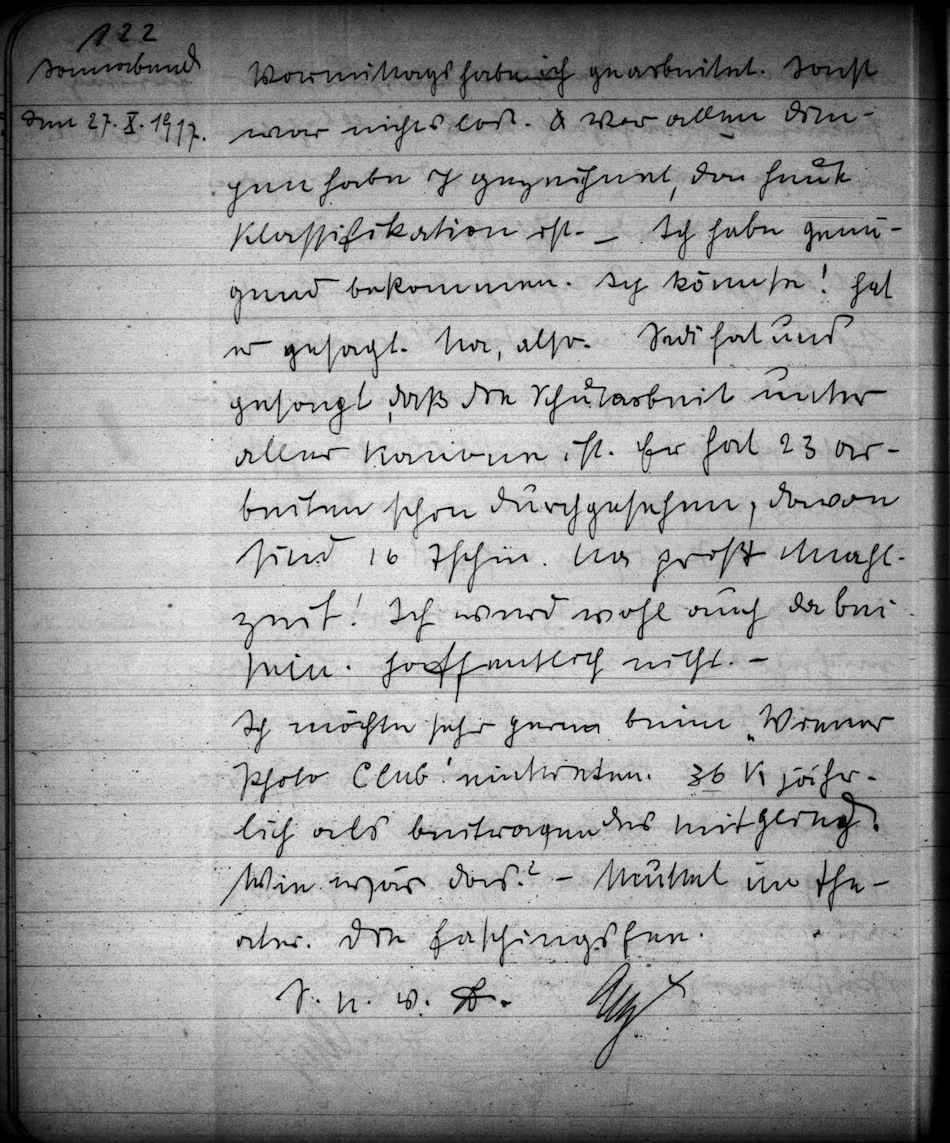 122
Sonnabend
den 27. X. 1917.
Vormittags habe ich gearbeitet. Sonst
war nichts los. Vor allen Din-
gen habe ich gezeichnet, da heute
Klassifikation ist. – Ich habe genü-
gend bekommen. Ich könnte! hat
er gesagt. Na, also. hat uns
gesagt, daß die Schularbeit unter
aller Kanone ist. Er hat 23 Ar-
beiten schon durchgesehen, davon
sind 16 Na prost Mahl-
zeit! Ich werd wohl auch dabei
sein. Hoffentlich nicht. –
Ich möchte sehr gerne beim „Wiener
Photo Club" eintreten. 36 K jähr-
lich als beitragendes Mitglied.
Wie wär das? – im The-
ater. Die Faschingsfee.
S. n. w.